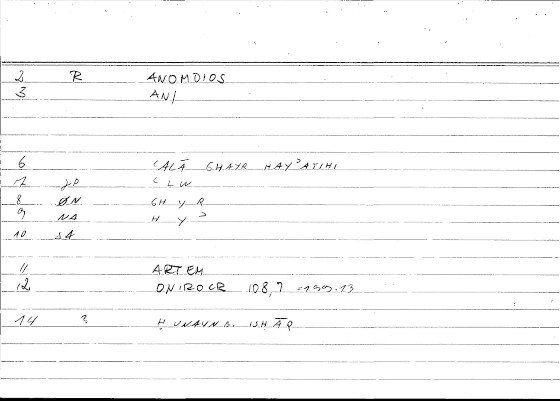 2 R ANOMOIOS
3 AN/
6 ʿALĀ GHAYR HAYʾATIHI
7 JP ʿLW
8 ØN GH Y R
9 NA H Y ʾ
10 SA
11 ARTEM
12 ONIROCR 108,7 =199.13
14 ? ḤUNAYN B. ISḤĀQ